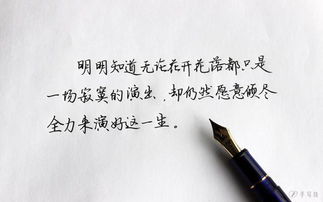 明明知道无论花开花落都只是
一场寂寞的演出，却仍然愿意倾尽
全力来演好这一生。